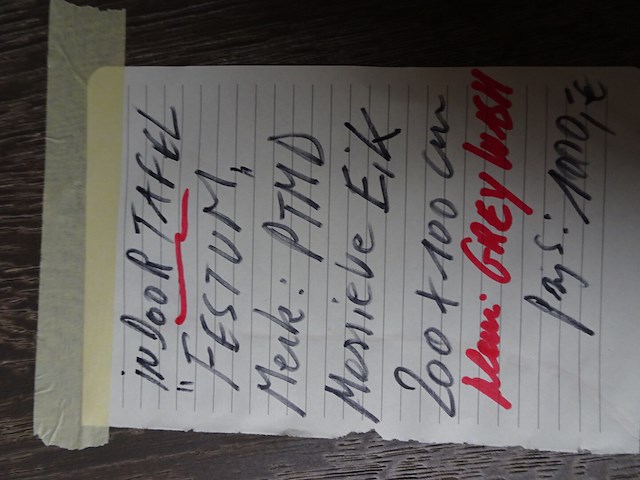 INDOOR TAFEL
"FESTUM"
Merk: PTMD
Massieve Eik
200 x 100 cm
GREY WASH
prijs: 1000,- €